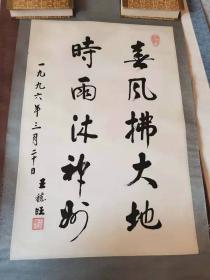 春风拂大地
時雨沐神州
一九九六年三月二十日